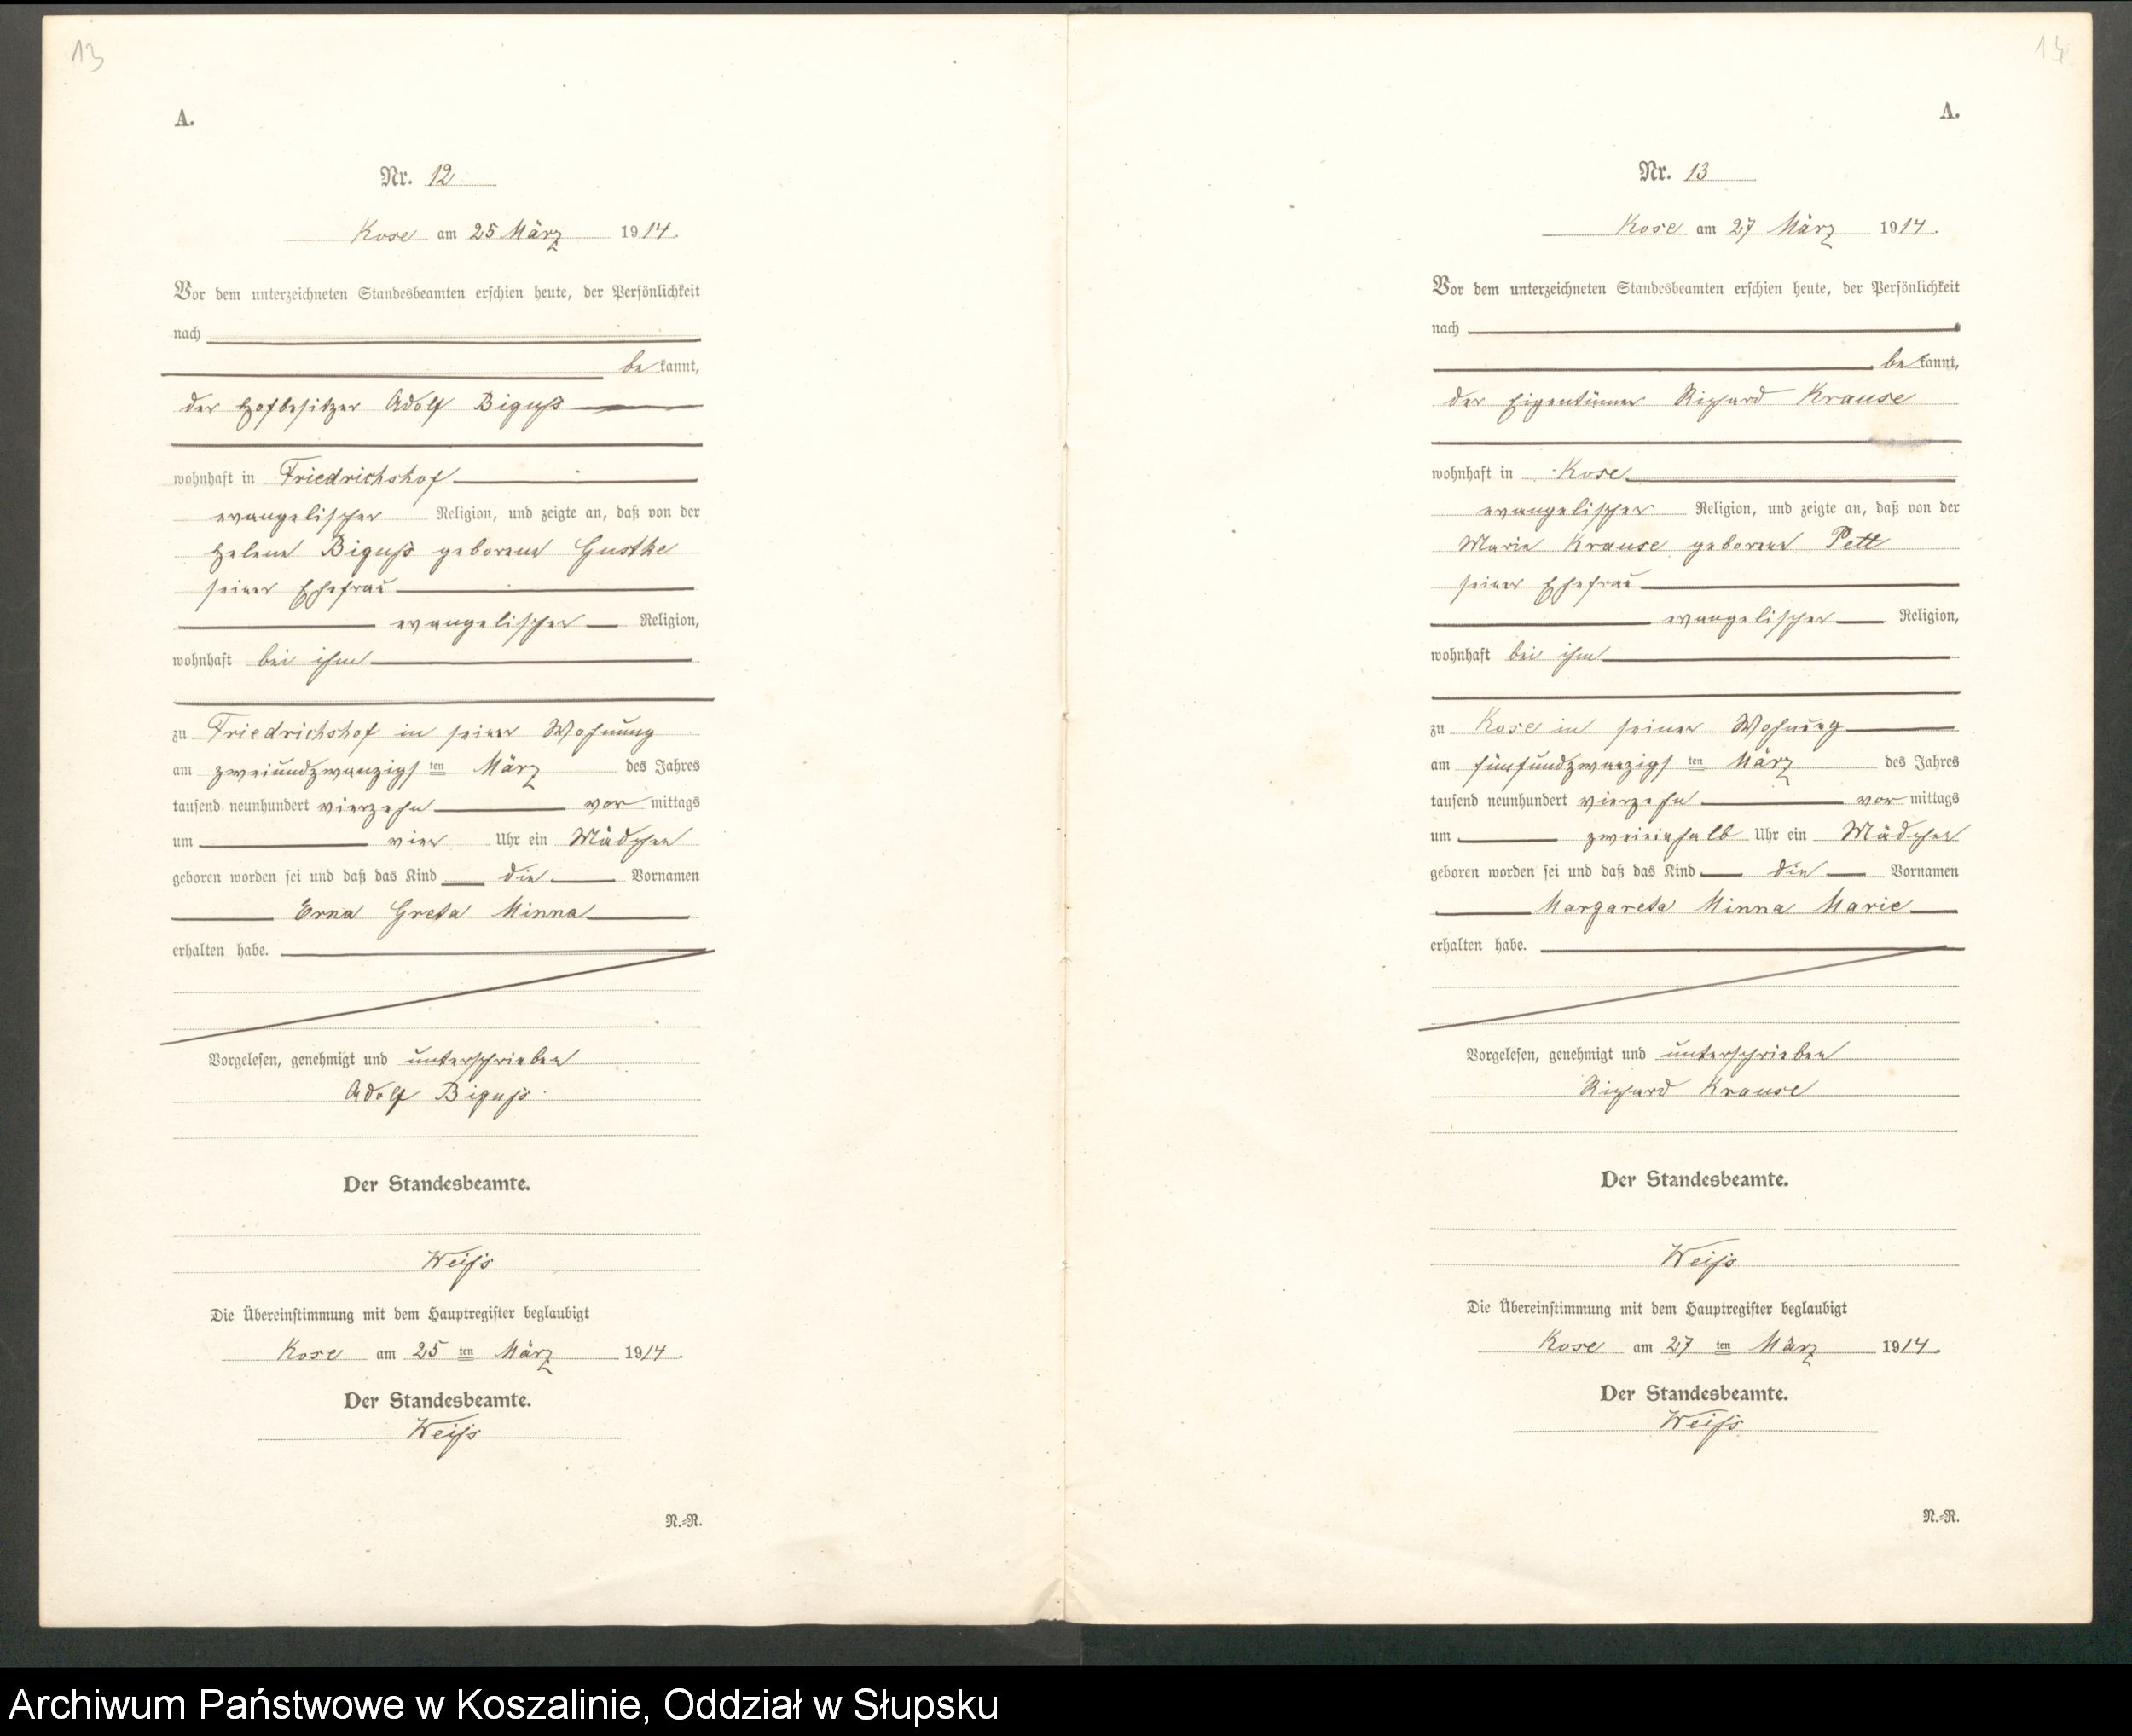 13
A.
Nr. 12
Kose am 25 März 1914.
Vor dem unterzeichneten Standesbeamten erschien heute, der Persönlichkeit
nach
be kannt,
der Hofbesitzer Adolf Biguß
wohnhaft in Friedrichshof
evangelischer Religion, und zeigte an, daß von der
Helene Biguß geborene Gustke
seiner Ehefrau
evangelischer Religion,
wohnhaft bei ihm
zu Friedrichshof in seiner Wohnung
am zweiundzwanzigs ten März des Jahres
tausend neunhundert vierzehn vor mittags
um vier Uhr ein Mädchen
geboren worden sei und daß das Kind die Vornamen
Erna Greta Minna
erhalten habe.
Vorgelesen, genehmigt und unterschrieben
Adolf Biguß.
Der Standesbeamte.
Weiß
Die Übereinstimmung mit dem Hauptregister beglaubigt
Kose am 25 ten März 1914.
Der Standesbeamte.
Weiß
N.=R.
14
A.
Nr. 13
Kose am 27 März 1914.
Vor dem unterzeichneten Standesbeamten erschien heute, der Persönlichkeit
nach
be kannt,
der Eigentümer Richard Krause
wohnhaft in Kose
evangelischer Religion, und zeigte an, daß von der
Marie Krause geborene Pett
seiner Ehefrau
evangelischer Religion,
wohnhaft bei ihm
zu Kose in seiner Wohnung
am fünfundzwanzigs ten März des Jahres
tausend neunhundert vierzehn vor mittags
um zweieinhalb Uhr ein Mädchen
geboren worden sei und daß das Kind die Vornamen
Margareta Minna Marie
erhalten habe.
Vorgelesen, genehmigt und unterschrieben
Richard Krause
Der Standesbeamte.
Weiß
Die Übereinstimmung mit dem Hauptregister beglaubigt
Kose am 27 ten März 1914.
Der Standesbeamte.
Weiß
N.=R.
Archiwum Państwowe w Koszalinie, Oddział w Słupsku